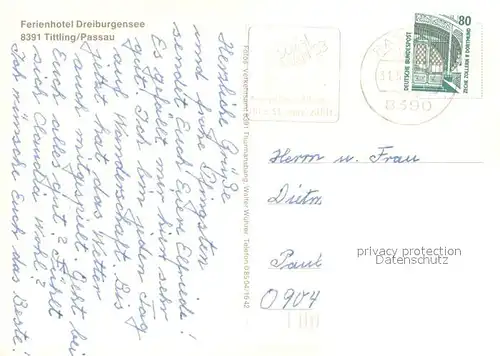 Ferienhotel Dreiburgensee
8391 Tittling/Passau
Herzliche Grüße
und frohe Pfingsten
sendet Euch Eure Elfriede!
Es gefällt mir hier sehr
gut! Ich bin jeden Tag
auf Wanderschaft. Bis
jetzt hat das Wetter
auch mitgespielt. Geht bei
Euch alles gut? Fühlt
sich Claudia wohl?
Ich wünsche Euch das Beste!
Fotos + Verkehrsamt 8391 Thurmansbang, Walter Wührer, Telefon 08504/1642
80
DEUTSCHE BUNDESPOST
ZECHE ZOLLERN II DORTMUND
8390
Herrn u. Frau
Dietm
Paul
0904
privacy protection
watermark